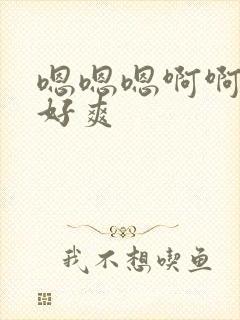 嗯嗯嗯啊啊
好爽
我不想喫鱼